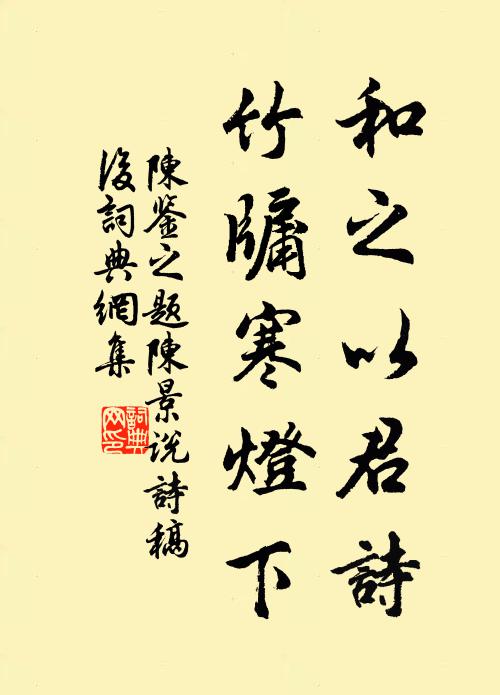 和之以君詩
竹牖寒燈下
陳鑒之題陳景说詩稿
後詞典網集
詞典
网印